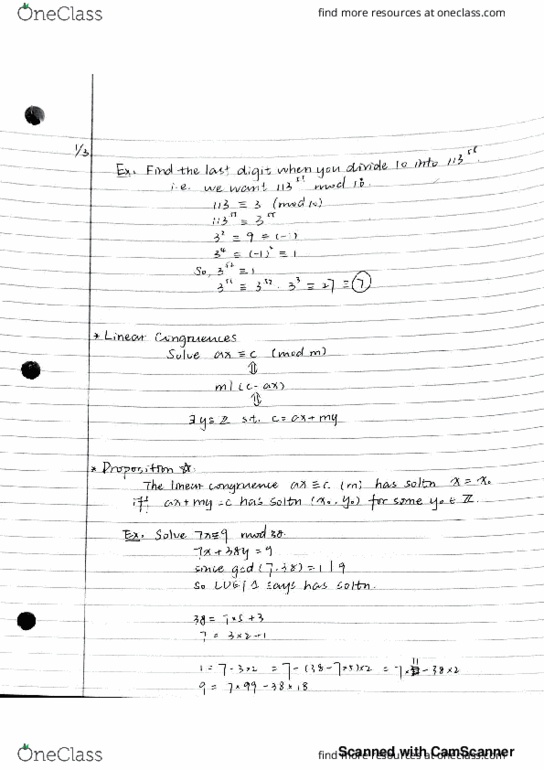 OneClass
find more resources at oneclass.com
1/3
Ex. Find the last digit when you divide 10 into 113
i.e. we want 113 mod 10.
113 ≡ 3 (mod 10)
3² ≡ 9 ≡ (-1)
3⁴ ≡ (-1)² ≡ 1
So, 3⁵² ≡ 1
3³ ≡ 27 ≡ 7
* Linear Congruences
Solve ax ≡ c (mod m)
⇕
m | (c - ax)
⇕
∃ y ∈ ℤ s.t. c = ax + my
* Proposition ☆.
The linear congruence ax ≡ c (m) has soltn x = x₀
iff ax + my = c has soltn (x₀, y₀) for some y₀ ∈ ℤ.
Ex. Solve 7x ≡ 9 mod 38.
7x + 38y = 9
since gcd (7, 38) = 1 | 9
so says has soltn.
38 = 7×5 + 3
7 = 3×2 - 1
1 = 7 - 3×2 = 7 - (38 - 7×5)×2 = 7×11 - 38×2
9 = 7×99 - 38×18
OneClass
find more resources at oneclass.com
Scanned with CamScanner